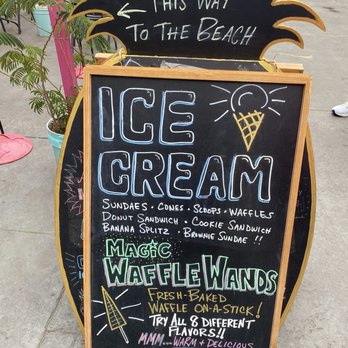 THIS WAY
TO THE BEACH
ICE
CREAM
SUNDAES · CONES · SCOOPS · WAFFLES
DONUT SANDWICH · COOKIE SANDWICH
BANANA SPLITZ · BROWNIE SUNDAE !!
MAGIC
WAFFLE WANDS
FRESH-BAKED
WAFFLE ON-A-STICK!
TRY ALL 8 DIFFERENT
FLAVORS!!
MMM...WARM & DELICIOUS